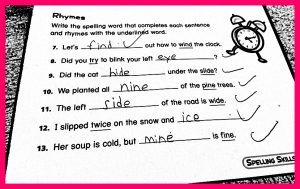 Rhymes
Write the spelling word that completes each sentence
and rhymes with the underlined word.
7. Let's find out how to wind the clock.
8. Did you try to blink your left eye ?
9. Did the cat hide under the slide?
10. We planted all nine of the pine trees.
11. The left side of the road is wide.
12. I slipped twice on the snow and ice .
13. Her soup is cold, but mine is fine.
SPELLING SKILLS